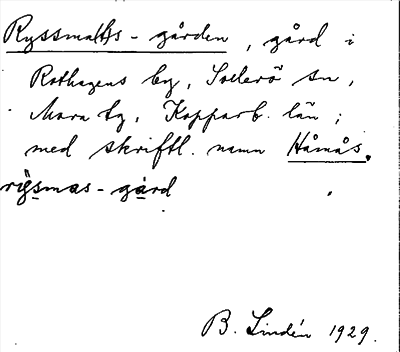 Ryssma(t)s-gården, gård i
Rothagens by, Sollerö sn,
Mora tg, Kopparb. län;
med skriftl. namn Håmås.
rı̀s̱mas-gård
B. Lindén 1929.